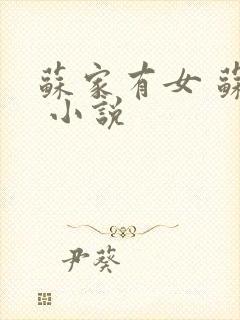 蘇家有女 蘇
小說
尹葵